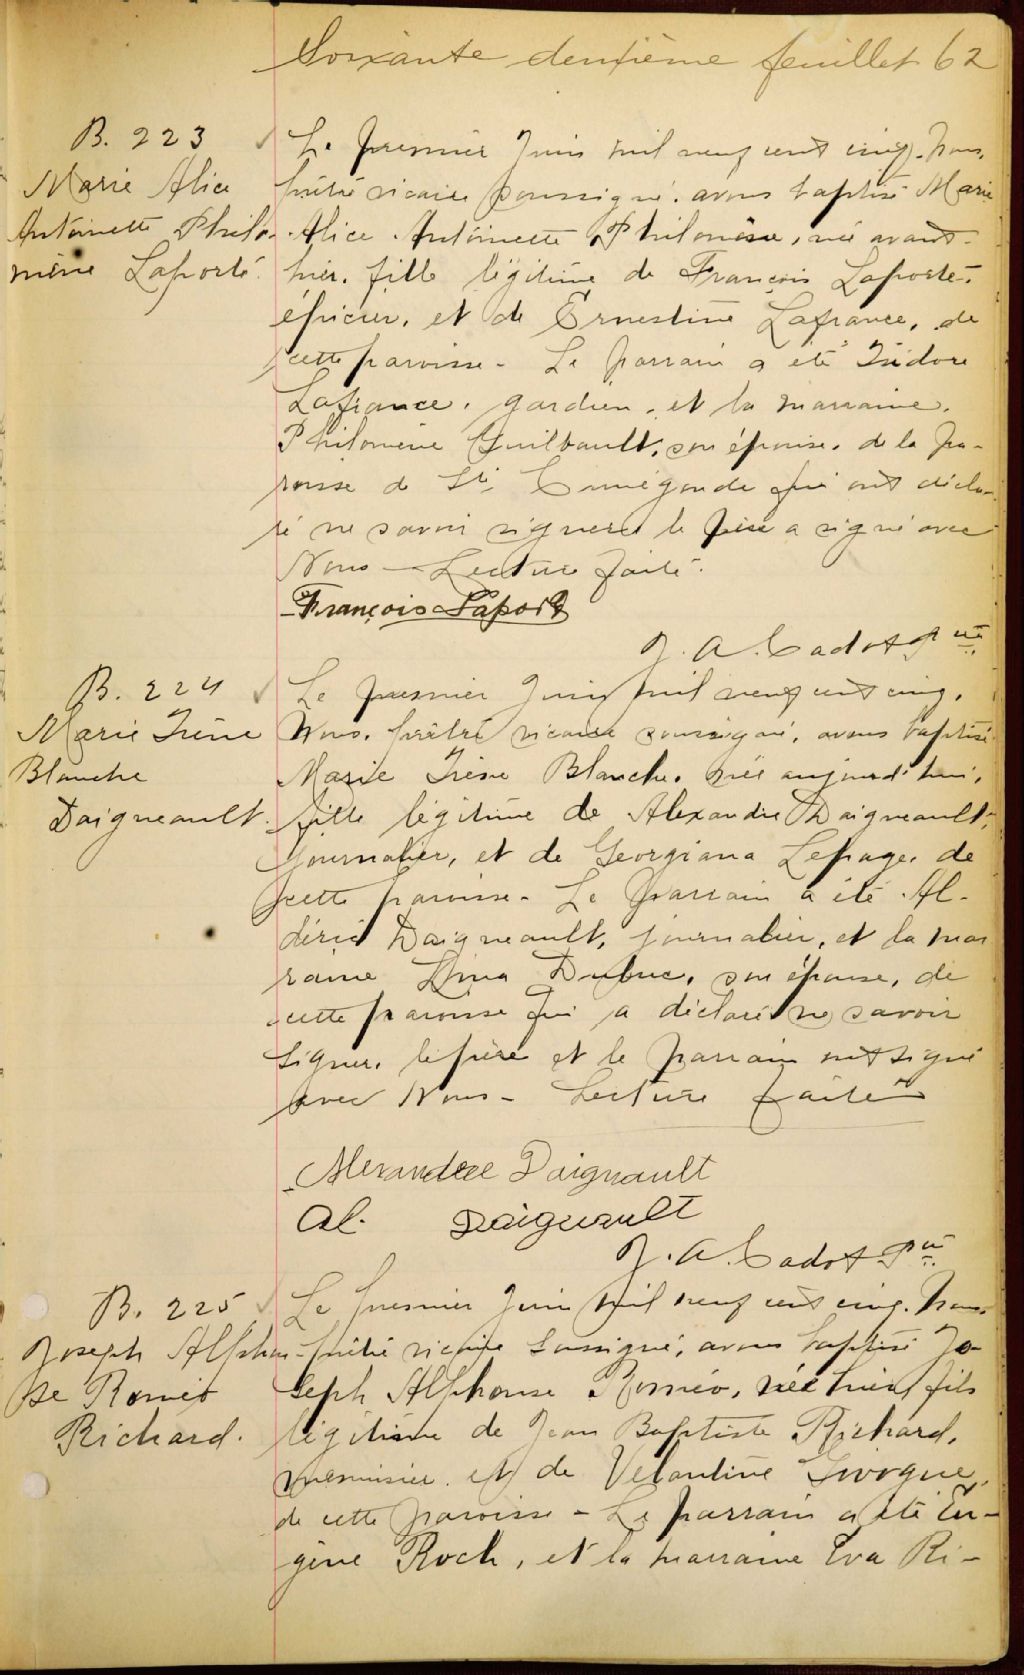 Soixante deuxième feuillet 62
B. 223
Marie Alice
Antoinette Philo-
mène Laporte.
Le premier Juin mil neuf cent cinq. Nous,
prêtre vicaire soussigné, avons baptisé Marie
Alice Antoinette Philomène, née avant-
hier, fille légitime de François Laporte,
épicier, et de Ernestine Lafrance, de
cette paroisse - Le parrain a été Isidore
Lafrance, gardien, et la marraine,
Philomène Guilbault, son épouse, de la pa-
roisse de Ste Cunégonde qui ont décla-
ré ne savoir signer, le père a signé avec
Nous - Lecture faite.
François Laporte
J. A. Cadot Ptre
B. 224
Marie Irène
Blanche
Daigneault.
Le premier Juin mil neuf cent cinq,
Nous, prêtre vicaire soussigné, avons baptisé
Marie Irène Blanche, née aujourd'hui,
fille légitime de Alexandre Daigneault,
journalier, et de Georgiana Lepage, de
cette paroisse - Le parrain a été Al-
déric Daigneault, journalier, et la mar
raine Dubuc, son épouse, de
cette paroisse qui a déclaré ne savoir
signer, le père et le parrain ont signé
avec Nous - Lecture faite
Alexandre Daignault
Al. Daigneault
J. A. Cadot Ptre
B. 225
Joseph Alphon-
se Roméo
Richard.
Le premier Juin mil neuf cent cinq. Nous,
prêtre vicaire soussigné, avons baptisé Jo-
seph Alphonse Roméo, née hier, fils
légitime de Jean Baptiste Richard,
menuisier et de Velantine
de cette paroisse - Le parrain a été Eu-
gène Roch, et la marraine Eva Ri-